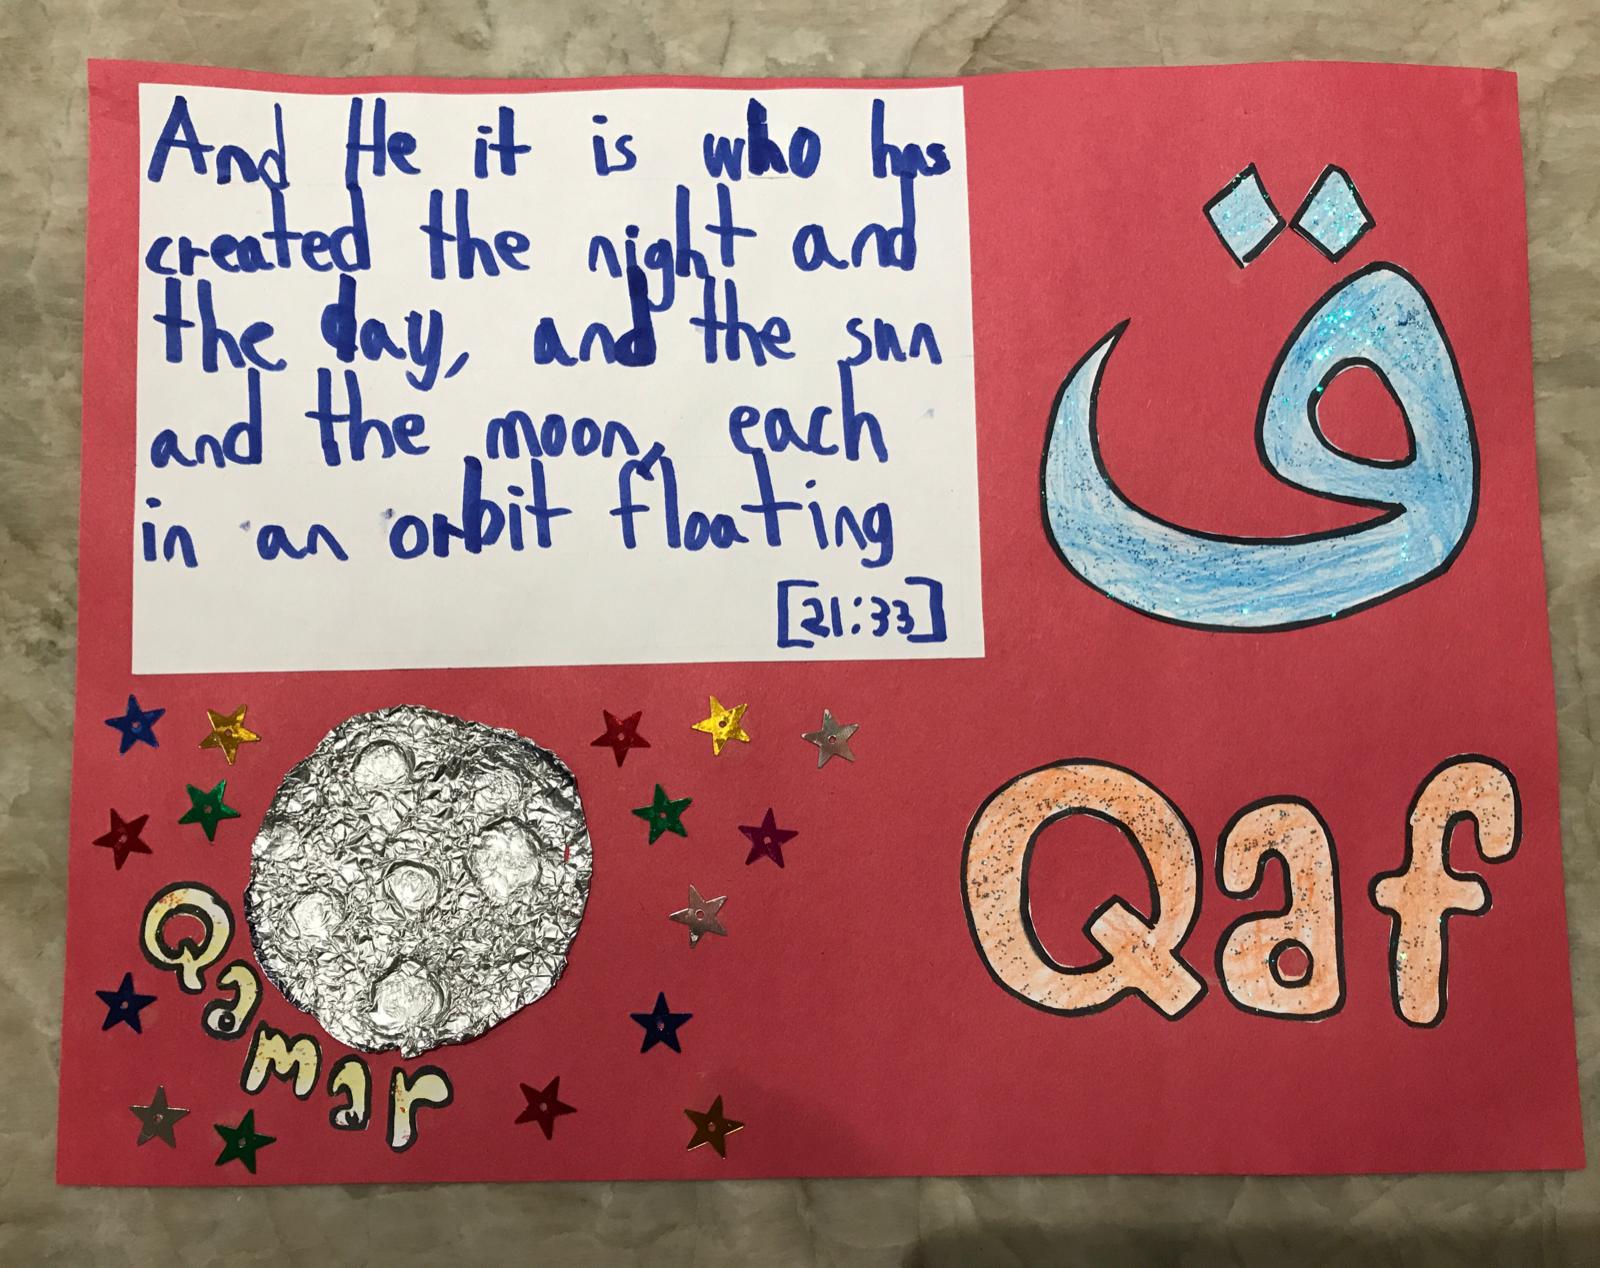 And He it is who has
created the night and
the day, and the sun
and the moon, each
in an orbit floating
[21:33]
ق
Qaf
Qamar